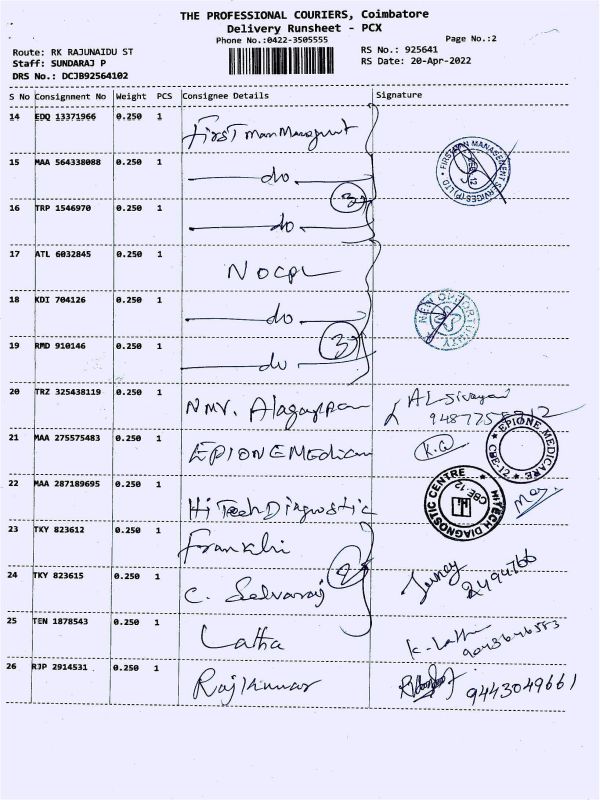 THE PROFESSIONAL COURIERS, Coimbatore
Delivery Runsheet - PCX
Phone No.:0422-3505555 Page No.:2
Route: RK RAJUNAIDU ST RS No.: 925641
Staff: SUNDARAJ P RS Date: 20-Apr-2022
DRS No.: DCJB92564102
S No Consignment No Weight PCS Consignee Details Signature
14 EDQ 13371966 0.250 1 First Man Managment
15 MAA 564338088 0.250 1 do FIRSTMAN MANAGEMENT SERVICES (P) LTD
3
16 TRP 1546970 0.250 1 do
17 ATL 6032845 0.250 1 NOCPL
18 KDI 704126 0.250 1 do NEW OPPORTUNITY
3
19 RMD 910146 0.250 1 do
20 TRZ 325438119 0.250 1 NMV. Alagappan AL Sivagami
21 MAA 275575483 0.250 1 EPIONE Medican K.G EPIONE MEDICARE CBE-12
22 MAA 287189695 0.250 1 Hi Tech Diagnostic HITECH DIAGNOSTIC CENTRE CBE-12
23 TKY 823612 0.250 1 Franklin
2
24 TKY 823615 0.250 1 C. Selvaraj 2494766
25 TEN 1878543 0.250 1 Latha K-Latha 9043646583
26 RJP 2914531 0.250 1 Rajkumar 9443049661